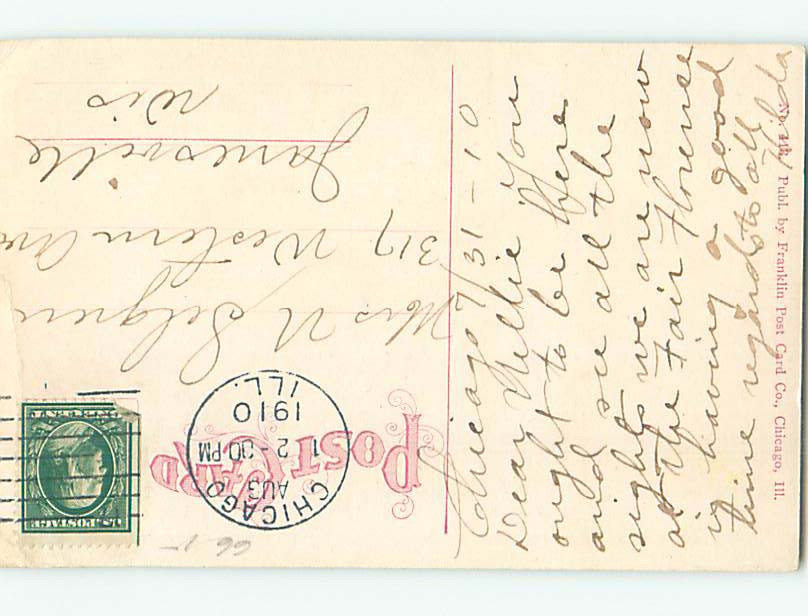 POST CARD
CHICAGO
AUG 1
2-30 PM
1910
ILL.
U.S. POSTAGE
Chicago 7/31-10
Dear Nellie You
ought to be here
and see all the
sights we are now
at the Fair Florence
is having a good
time regards to all
Hilda
Mrs N Selgren
317 Western Ave
Janesville
Wis
No. 418, Publ. by Franklin Post Card Co., Chicago, Ill.